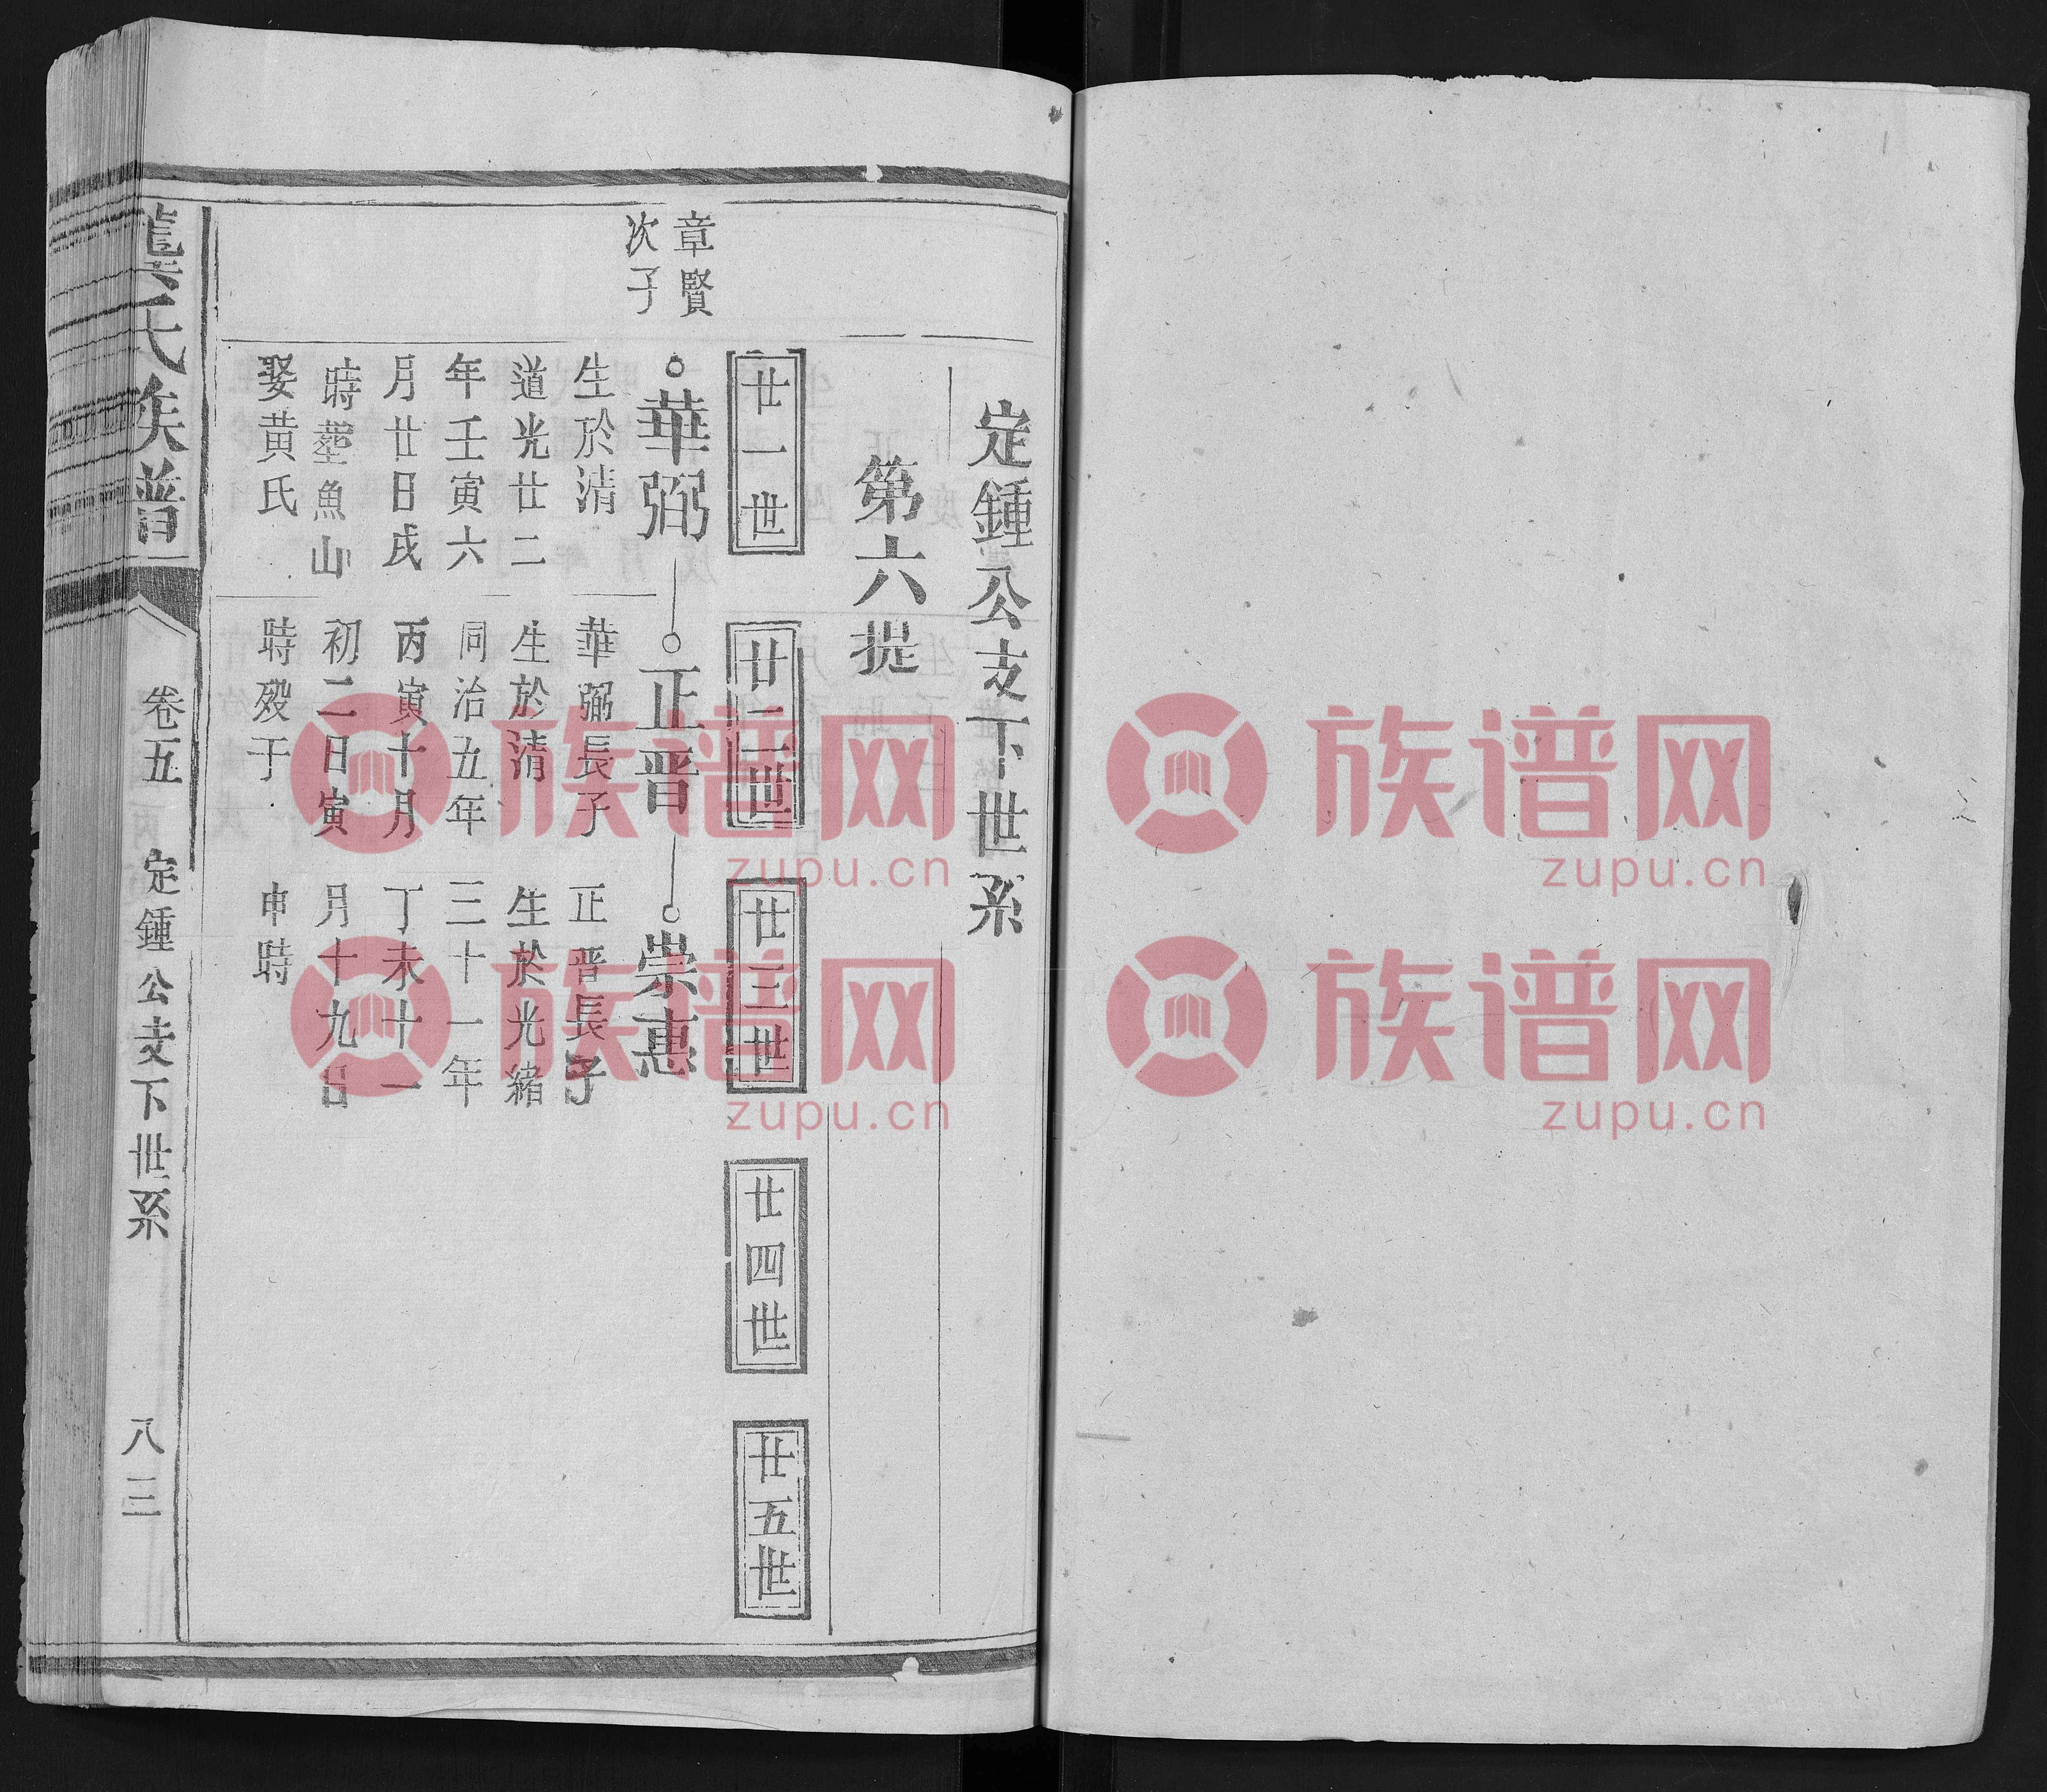 定鍾公支下世系
第六提
廿一世
廿二世
廿三世
廿四世
廿五世
章賢
次子
華弼
正晋
崇惠
生於清
道光廿二
年壬寅六
月廿日戌
時塟魚山
娶黄氏
華弼長子
生於清
同治五年
丙寅十月
初二日寅
時殁于
正晋長子
生於光緒
三十一年
丁未十一
月十九日
申時
龔氏族譜
卷五
定鍾公支下世系
八三
族谱网
zupu.cn
族谱网
zupu.cn
族谱网
zupu.cn
族谱网
zupu.cn